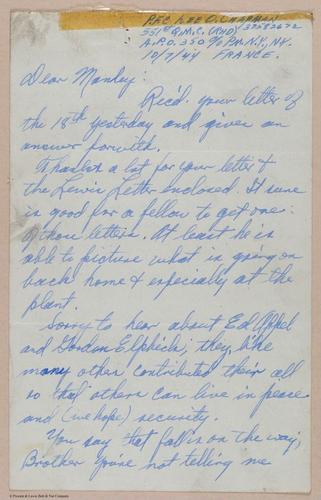 Pfc. Lee O. Chapman
551st Q.M.C. (Rhd) 37582672
A.P.O. 350 % P.M. N.Y., N.Y.
10/7/44 FRANCE.
Dear Manley:
Rec'd. your letter of
the 18th yesterday and given an
answer forwith.
Thanks a lot for your letter &
the Lewis Letter enclosed. It sure
is good for a fellow to get one
of those letters. At least he is
able to picture what is going on
back home & especially at the
plant.
Sorry to hear about Ed Appel
and Gordon Elphick; they like
many other contributed their all
so that others can live in peace
and (we hope) security.
You say that fall is on the way,
Brother you're not telling me